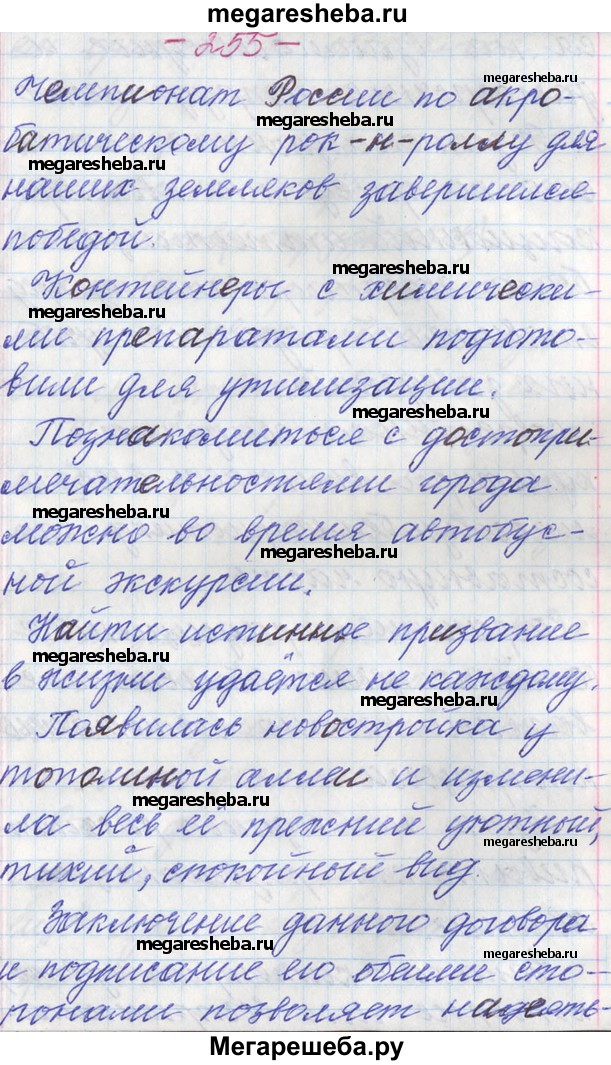 megaresheba.ru
- 255 -
Чемпионат России по акро-
батическому рок-н-роллу для
наших земляков завершился
победой.
Контейнеры с химически-
ми препаратами подгото-
вили для утилизации.
Познакомиться с достопри-
мечательностями города
можно во время автобус-
ной экскурсии.
Найти истинное призвание
в жизни удаётся не каждому.
Появилась новостройка у
тополиной аллеи и измени-
ла весь её прежний уютный,
тихий, спокойный вид.
Заключение данного договора
и подписание его обеими сто-
ронами позволяет надеять-
megaresheba.ru
megaresheba.ru
megaresheba.ru
megaresheba.ru
megaresheba.ru
megaresheba.ru
megaresheba.ru
megaresheba.ru
megaresheba.ru
megaresheba.ru
megaresheba.ru
megaresheba.ru
megaresheba.ru
megaresheba.ru
Мегарешеба.ру